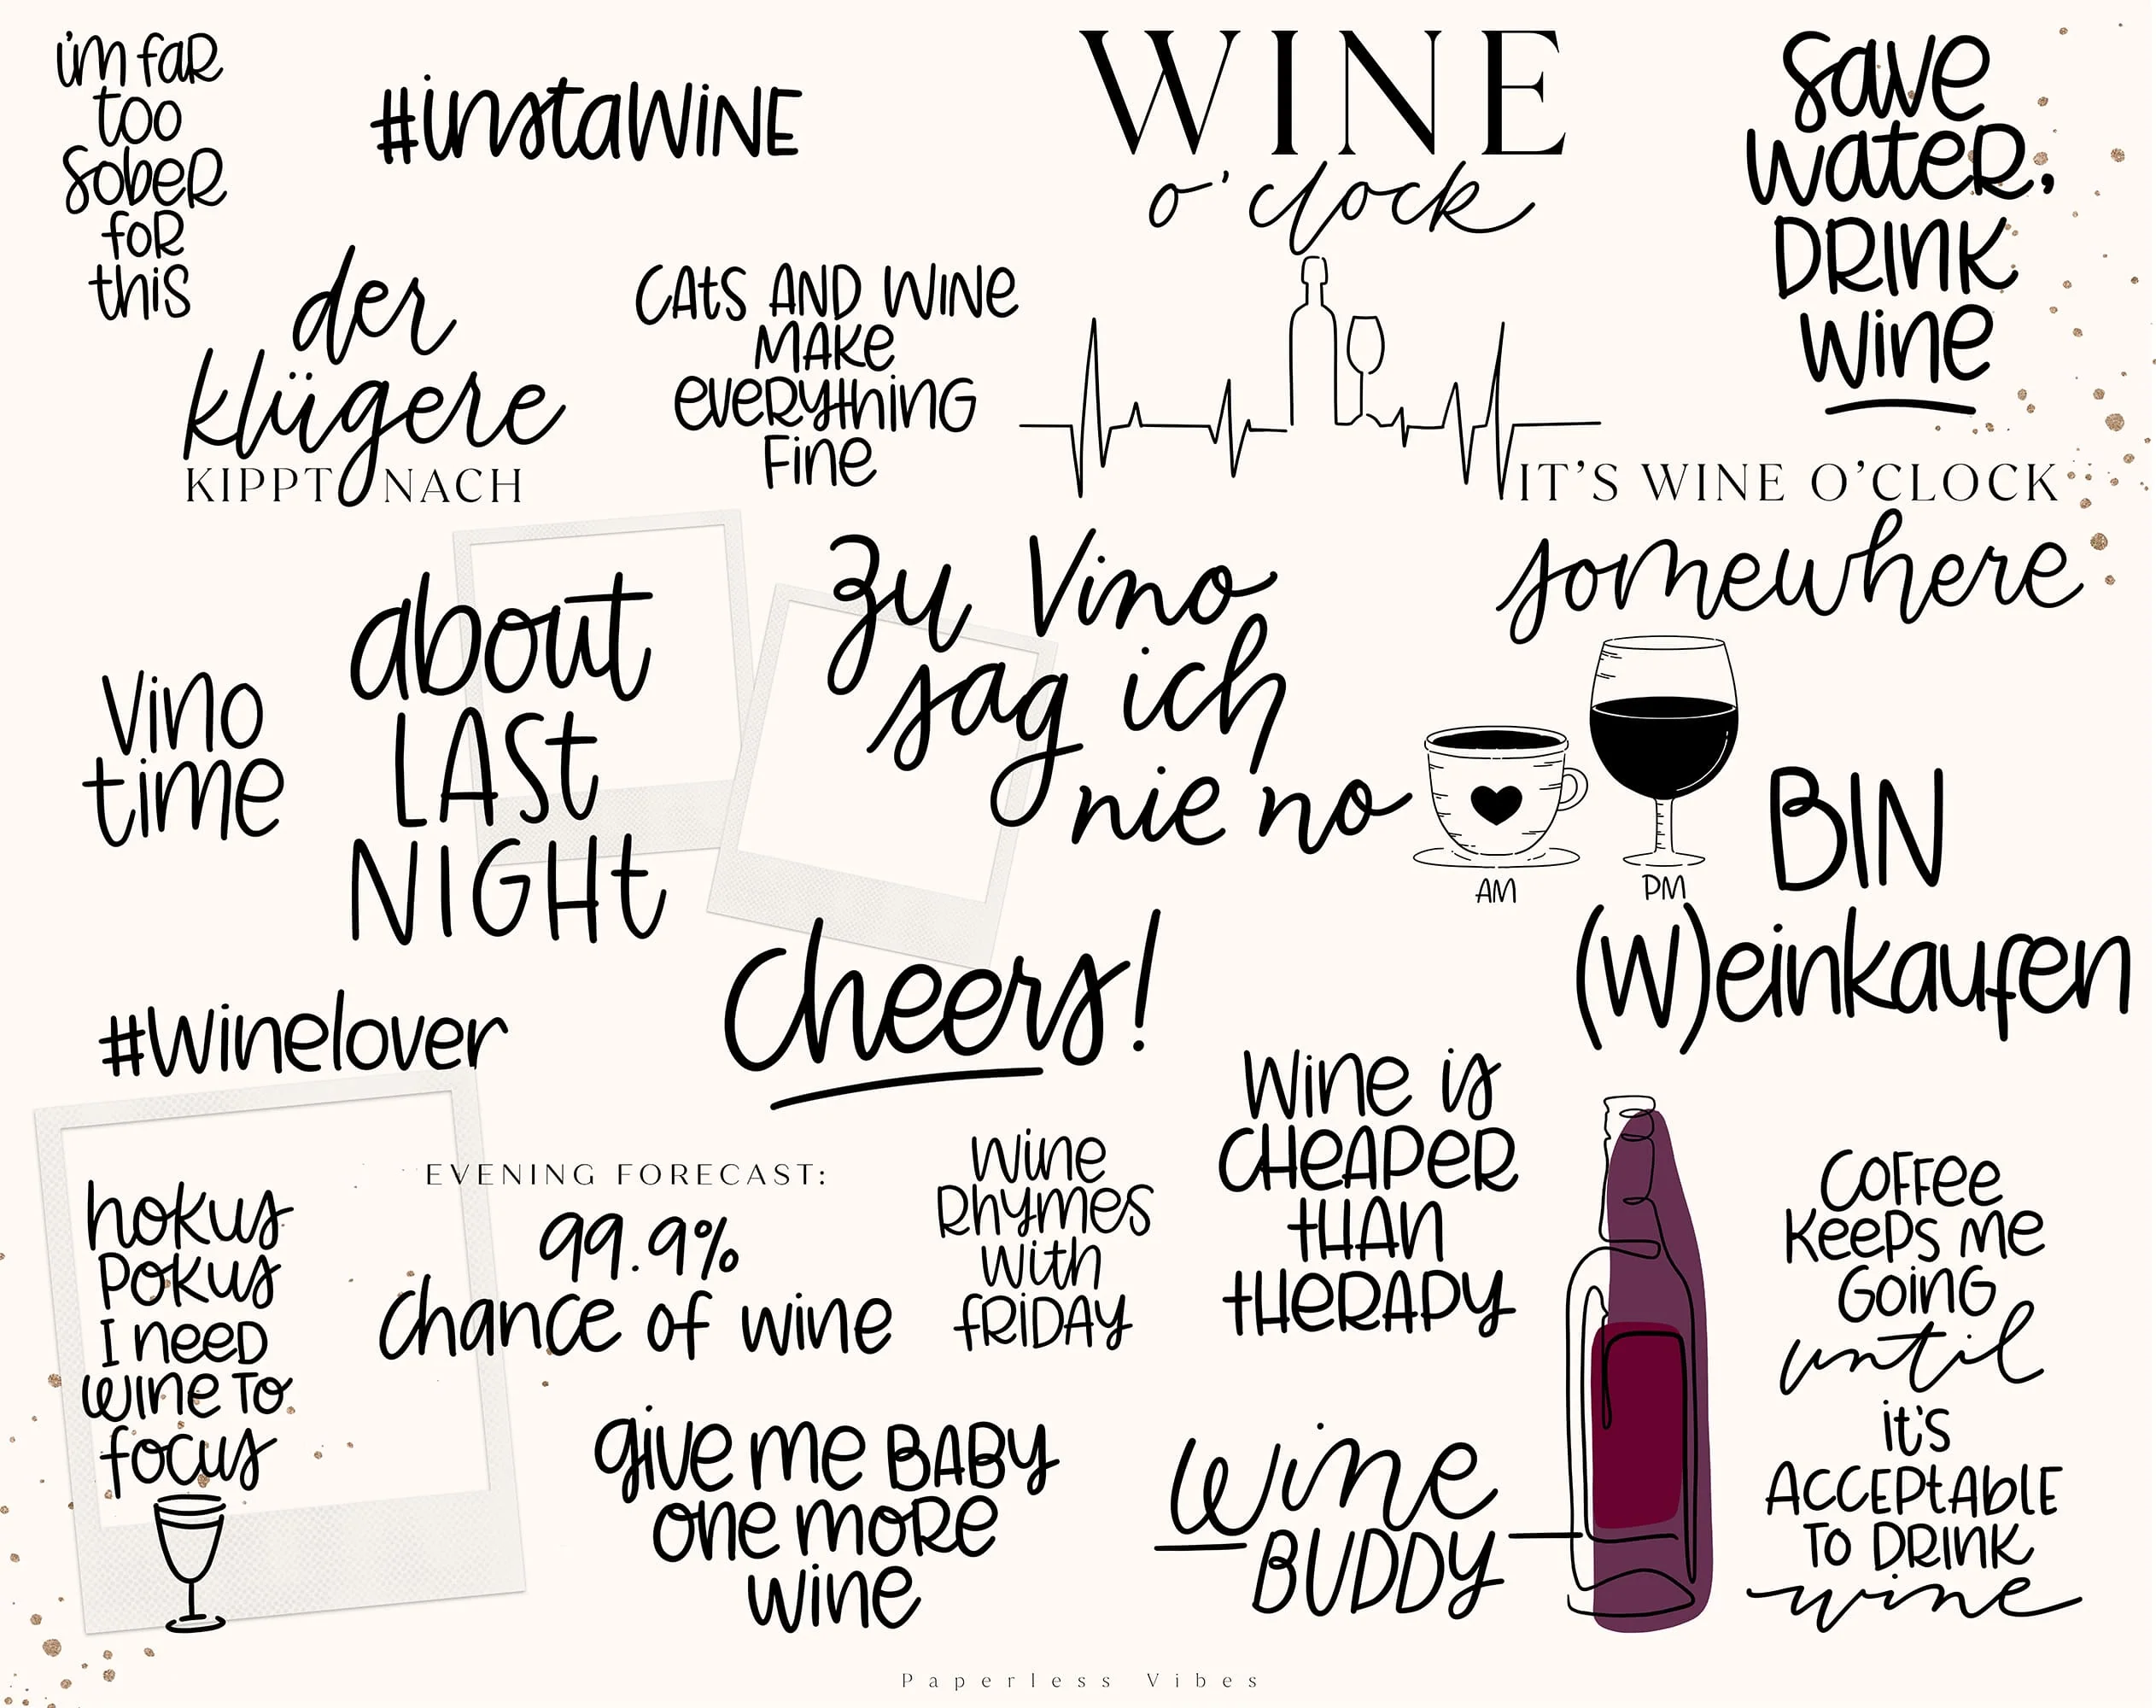 i'm far
too
sober
for
this
#instawine
WINE
o'clock
save
water,
DRINK
wine
der
klügere
KIPPT NACH
CAtS AND WiNe
MAKe
eveRythiNG
Fine
IT'S WINE O'CLOCK
somewhere
about
LASt
NIGHt
zu Vino
sag ich
nie no
Vino
time
AM
PM
BIN
(W)einkaufen
#Winelover
Cheers!
hokus
pokus
I need
wine to
focus
EVENING FORECAST:
99.9%
chance of wine
wine
Rhymes
with
fRiDAy
Wine is
CHeAPeR
tHAN
tHeRAPy
COFFee
KeePS Me
GOiNG
until
it's
ACCEPtAblE
TO DRiNK
wine
give me BABy
one moRe
wine
Wine
BUDDy
Paperless Vibes